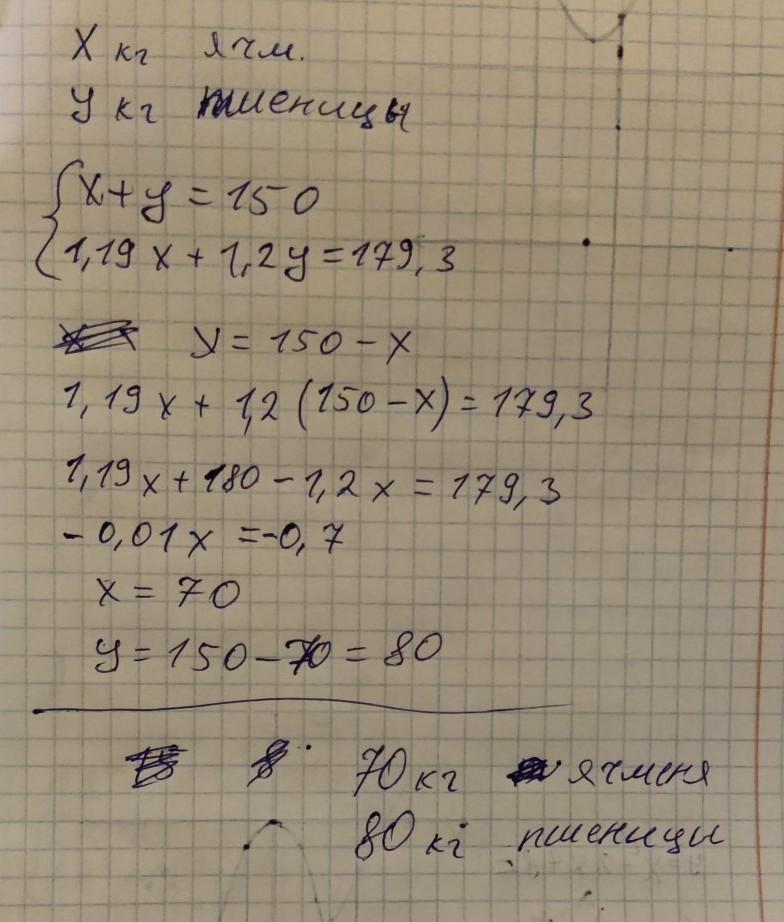 X кг ячм.
y кг пшеницы
x + y = 150
1,19 x + 1,2 y = 179,3
y = 150 - x
1,19 x + 1,2 (150 - x) = 179,3
1,19 x + 180 - 1,2 x = 179,3
- 0,01 x = -0,7
x = 70
y = 150 - 70 = 80
70 кг ячменя
80 кг пшеницы